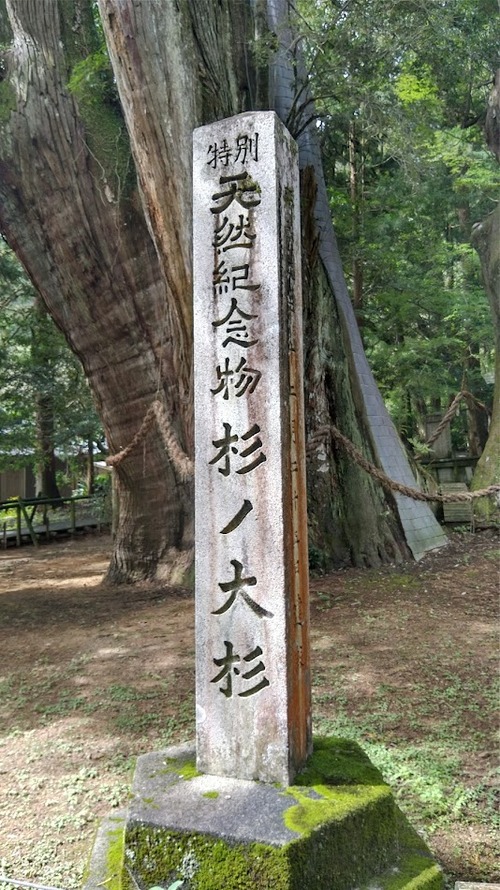 特別
天然紀念物杉ノ大杉